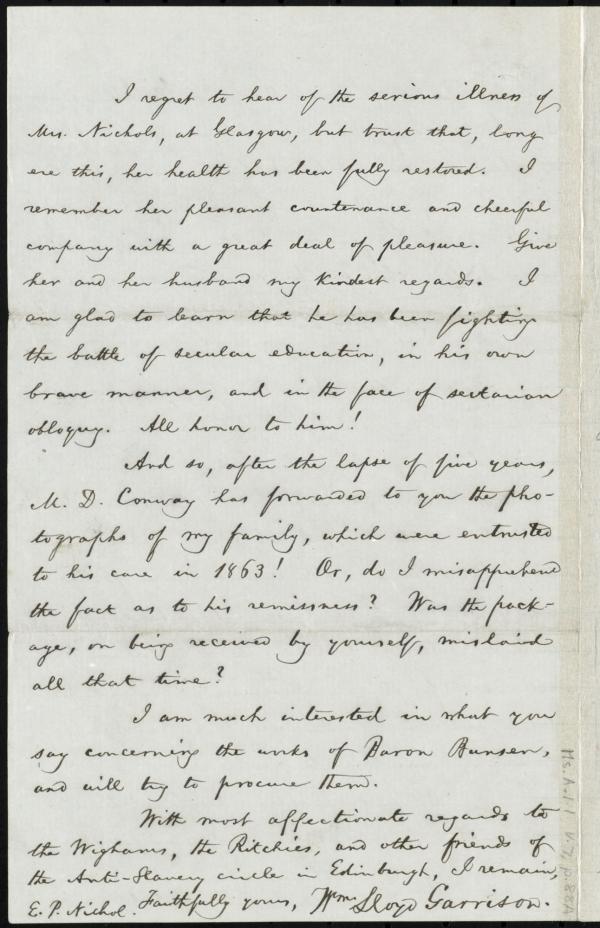 I regret to hear of the serious illness of
Mrs. Nichols, at Glasgow, but trust that, long
ere this, her health has been fully restored. I
remember her pleasant countenance and cheerful
company with a great deal of pleasure. Give
her and her husband my kindest regards. I
am glad to learn that he has been fighting
the battle of secular education, in his own
brave manner, and in the face of sectarian
obloquy. All honor to him!
And so, after the lapse of five years,
M. D. Conway has forwarded to you the pho-
tographs of my family, which were entrusted
to his care in 1863! Or, do I misapprehend
the fact as to his remissness? Was the pack-
age, on being received by yourself, mislaid
all that time?
I am much interested in what you
say concerning the works of Baron Bunsen,
and will try to procure them.
With most affectionate regards to
the Wighams, the Ritchies, and other friends of
the Anti-Slavery circle in Edinburgh, I remain,
Faithfully yours, Wm. Lloyd Garrison.
E. P. Nichol.
Ms.A.1.1 v.7, p.88A